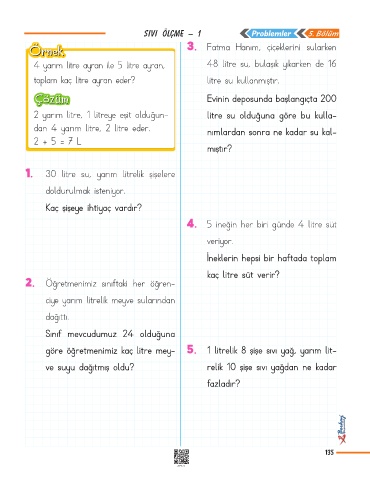 SIVI ÖLÇME - 1
Problemler
5. Bölüm
Örnek
4 yarım litre ayran ile 5 litre ayran,
toplam kaç litre ayran eder?
Çözüm
2 yarım litre, 1 litreye eşit olduğun-
dan 4 yarım litre, 2 litre eder.
2 + 5 = 7 L
1. 30 litre su, yarım litrelik şişelere
doldurulmak isteniyor.
Kaç şişeye ihtiyaç vardır?
2. Öğretmenimiz sınıftaki her öğren-
ciye yarım litrelik meyve sularından
dağıttı.
Sınıf mevcudumuz 24 olduğuna
göre öğretmenimiz kaç litre mey-
ve suyu dağıtmış oldu?
3. Fatma Hanım, çiçeklerini sularken
48 litre su, bulaşık yıkarken de 16
litre su kullanmıştır.
Evinin deposunda başlangıçta 200
litre su olduğuna göre bu kulla-
nımlardan sonra ne kadar su kal-
mıştır?
4. 5 ineğin her biri günde 4 litre süt
veriyor.
İneklerin hepsi bir haftada toplam
kaç litre süt verir?
5. 1 litrelik 8 şişe sıvı yağ, yarım lit-
relik 10 şişe sıvı yağdan ne kadar
fazladır?
135